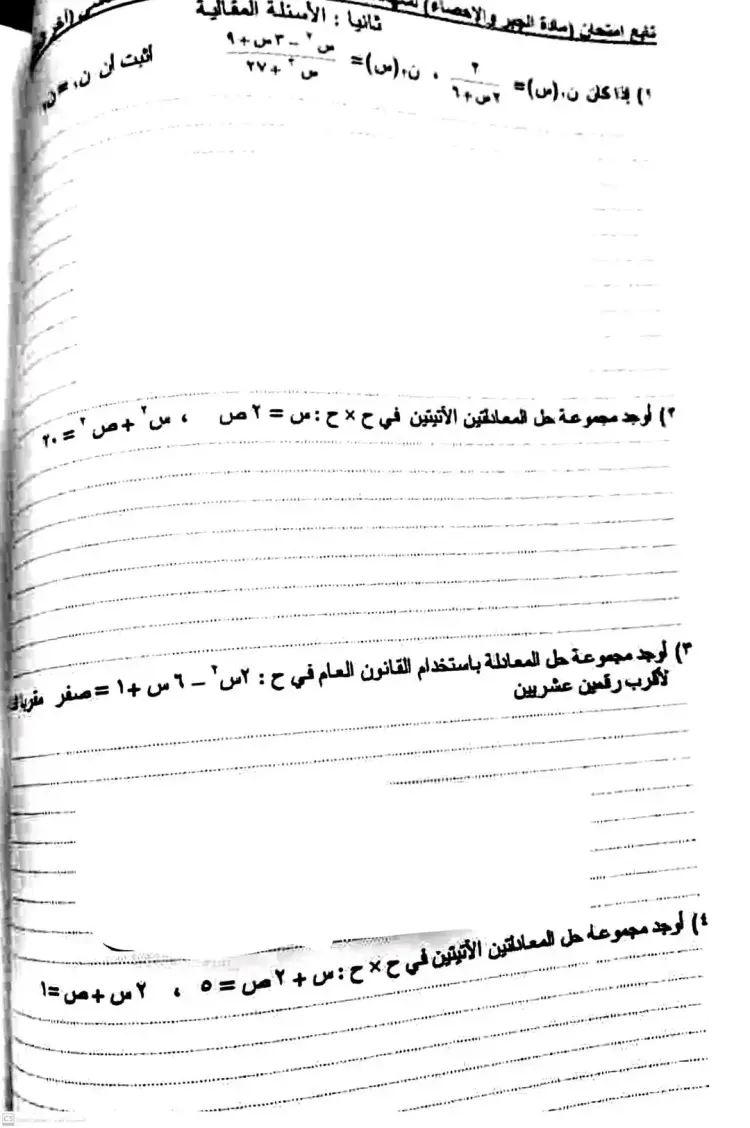 تابع امتحان (مادة الجبر والإحصاء)
ثانيا : الأسئلة المقالية
١) إذا كان ن١(س) = ٢ / (٢س+٦) ، ن٢(س) = (س٢ – ٣س+٩) / (س٣ +٢٧) أثبت أن ن١ = ن٢
٢) أوجد مجموعة حل المعادلتين الآتيتين في ح × ح : س = ٢ ص ، س٢ + ص٢ = ٢٠
٣) أوجد مجموعة حل المعادلة باستخدام القانون العام في ح : ٢س٢ – ٦ س + ١ = صفر مقربا
لأقرب رقمين عشريين
٤) أوجد مجموعة حل المعادلتين الآتيتين في ح × ح : س + ٢ ص = ٥ ، ٢ س + ص = ١
CS